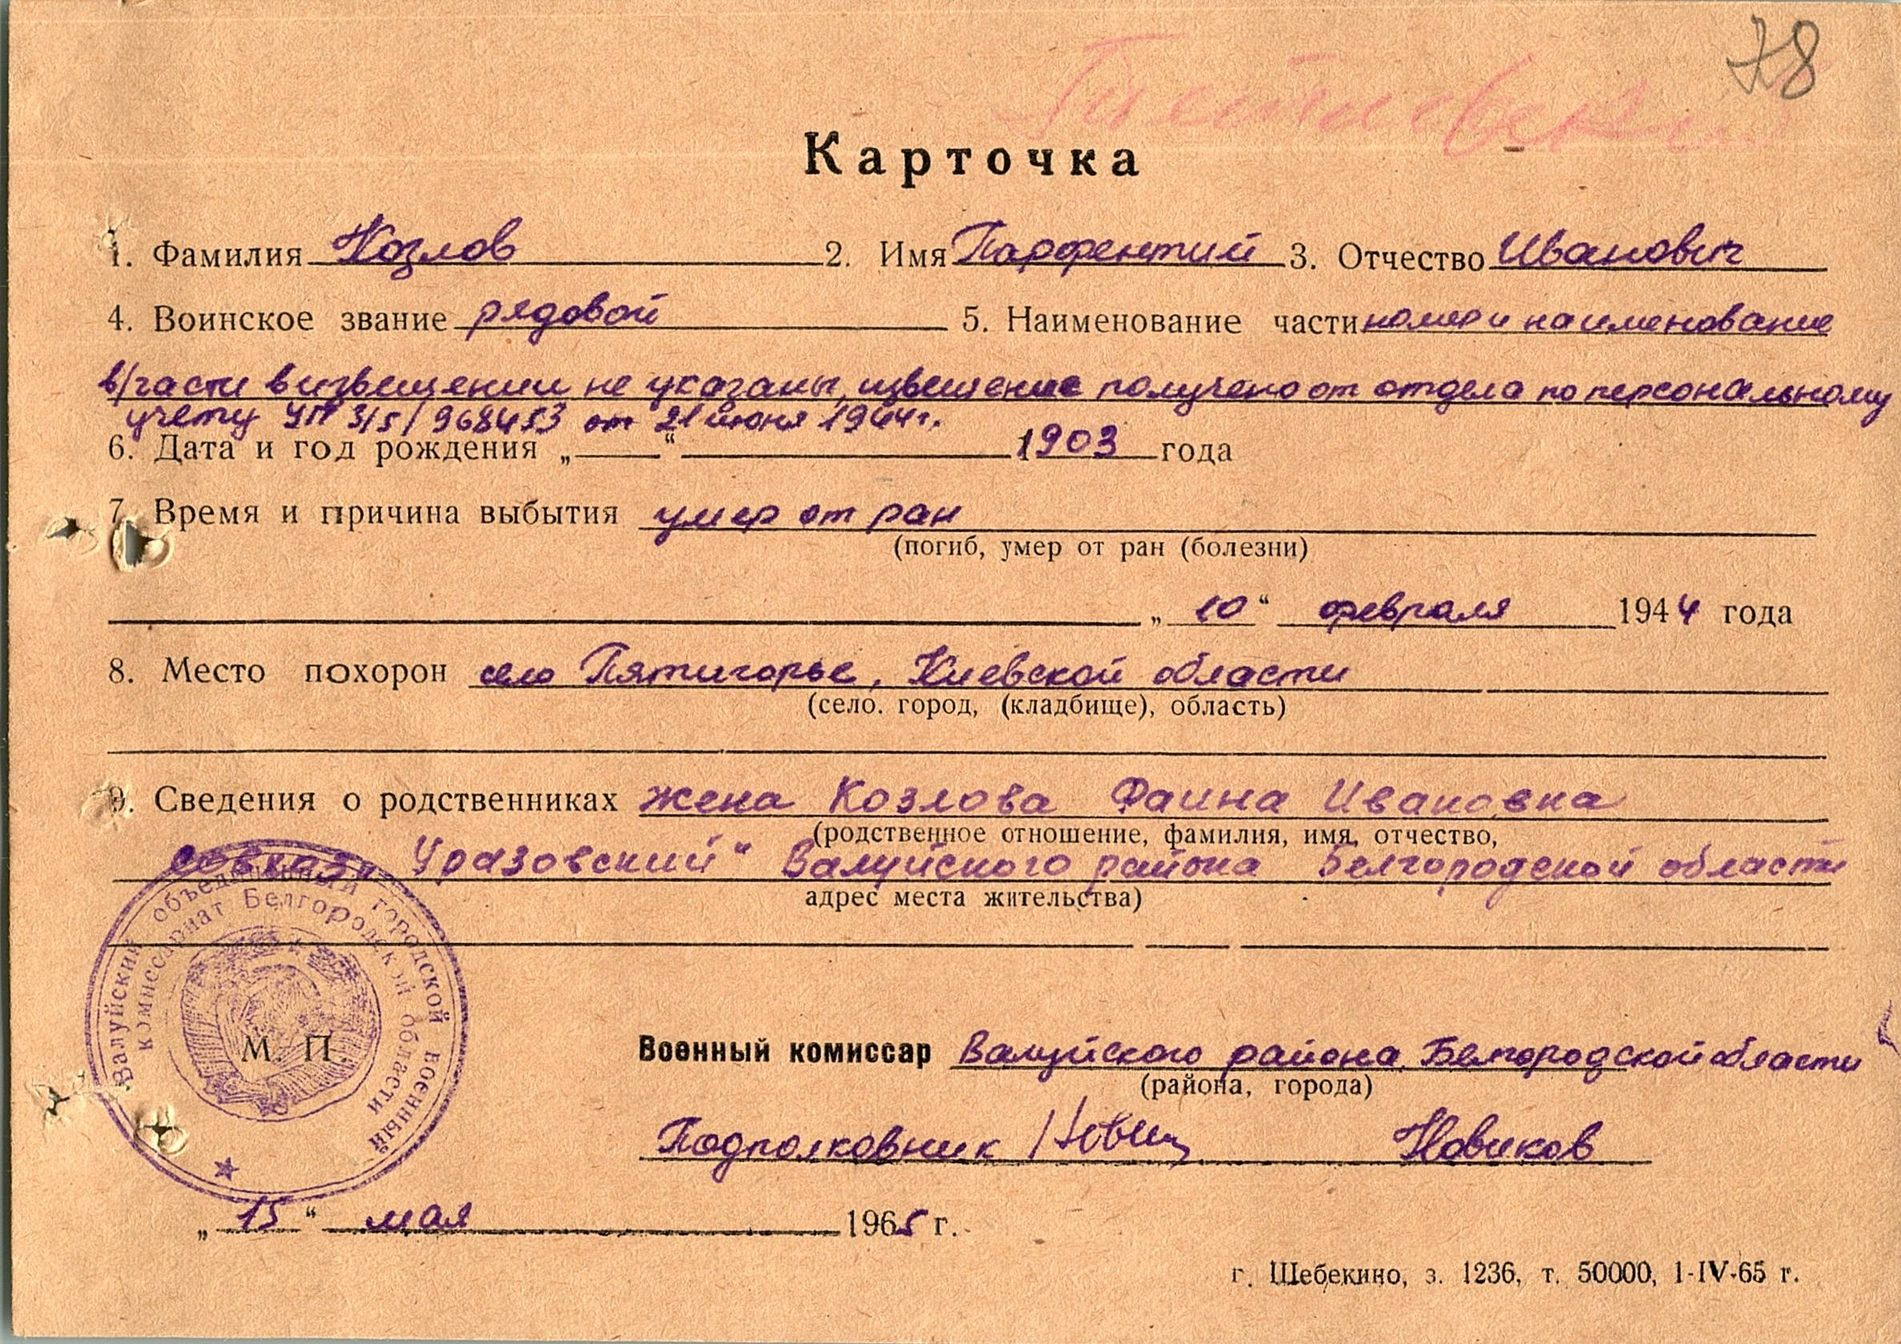 78
Карточка
1. Фамилия Козлов 2. Имя Парфентий 3. Отчество Иванович
4. Воинское звание рядовой 5. Наименование части номер и наименование
в/части в извещении не указаны, извещение получено от отдела по персональному
учету УП 3/5/968453 от 21 июня 1944г.
6. Дата и год рождения „ “ 1903 года
7. Время и причина выбытия умер от ран
(погиб, умер от ран (болезни)
„ 10 “ февраля 1944 года
8. Место похорон село Пятигорье, Киевской области
(село. город, (кладбище), область)
9. Сведения о родственниках жена Козлова Фаина Ивановна
(родственное отношение, фамилия, имя, отчество,
совхоз „Уразовский“ Валуйского района Белгородской области
адрес места жительства)
Валуйский объединенный городской военный
комиссариат Белгородской области
М. П.
Военный комиссар Валуйского района, Белгородской области
(района, города)
Подполковник Новиков
„ 15 “ мая 1965 г.
г. Шебекино, з. 1236, т. 50000, 1-IV-65 г.